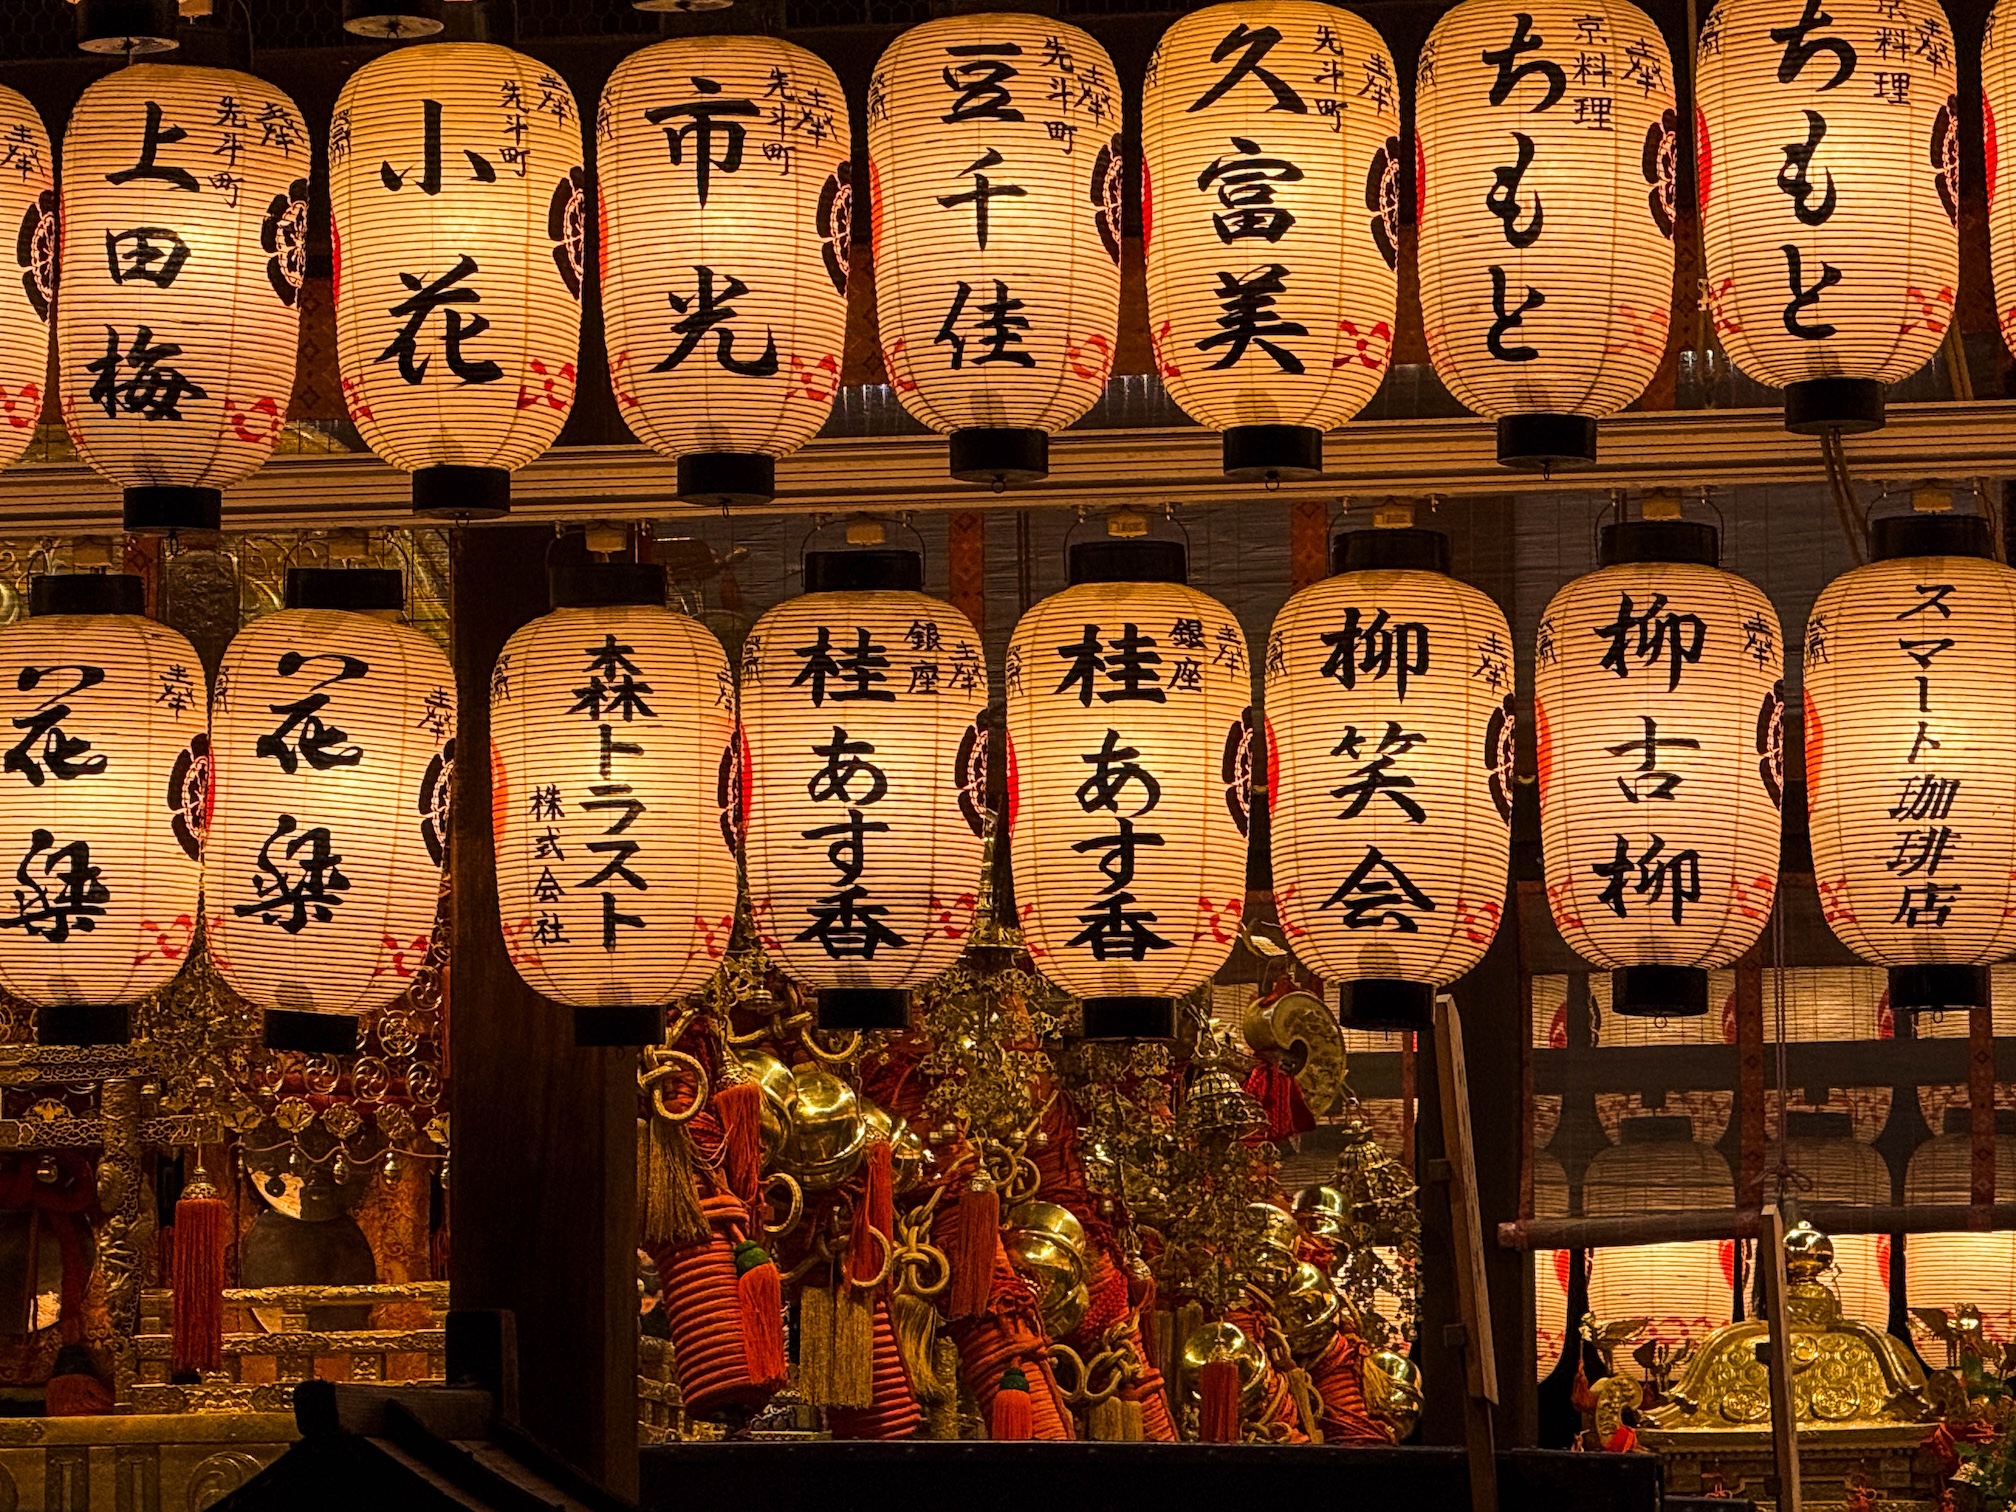 奉
先斗町
上田梅
奉
先斗町
小花
奉
先斗町
市光
奉
先斗町
豆千佳
奉
先斗町
久富美
奉
京料理
ちもと
奉
京料理
ちもと
奉
花梁
奉
花梁
森トラスト
株式会社
奉
銀座
桂あす香
奉
銀座
桂あす香
奉
柳笑会
奉
柳古柳
スマート珈琲店